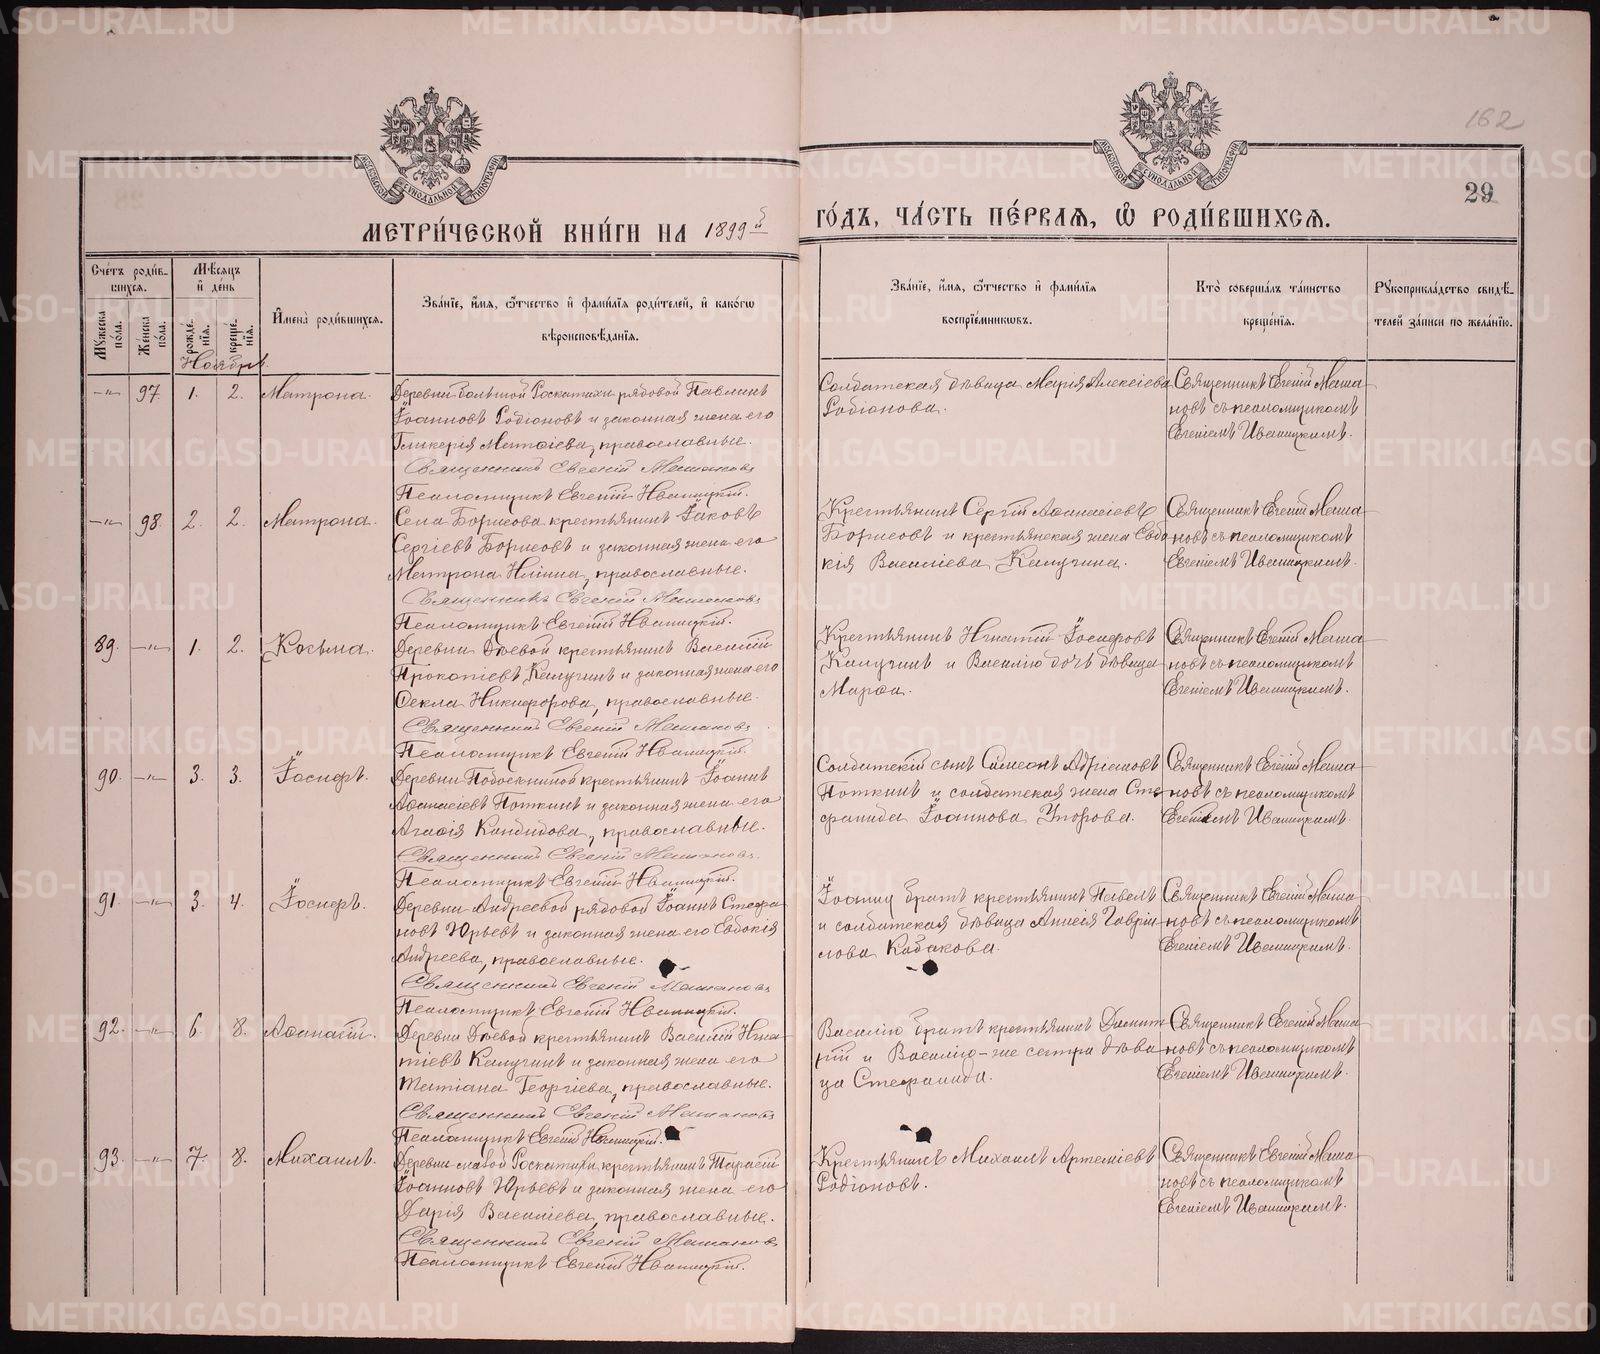 162
29
МЕТРИ́ЧЕСКОЙ КНИ́ГИ НА 1899й ГО́ДЪ, ЧА́СТЬ ПЕ́РВАЯ, Ѡ РОДИ́ВШИХСЯ.
Сче́тъ роди́вшихся.
Мѣ́сяцъ и де́нь
Имена̀ роди́вшихся.
Зва́нїе, и́мя, ѻ́тчество и фами́лїя роди́телей, и како́гѡ
вѣроисповѣ́данїя.
Зва́нїе, и́мя, ѻ́тчество и фами́лїя
воспрїе́мникѡвъ.
Кто̀ соверша́лъ та́инство
креще́нїя.
Рꙋкоприкла́дство свидѣ́-
телей за́писи по жела́нїю.
Мꙋ́жеска по́ла.
Же́нска по́ла.
рожде́нїя.
креще́нїя.
Ноябрь.
-"- 97. 1. 2. Матрона.
Деревни Большой Роскатихи рядовой Павлинъ
Іоанновъ Родіоновъ и законная жена его
Гликерія Матѳіева, православные.
Священникъ Евгеній Машановъ
Псаломщикъ Евгеній Иваницкій.
Солдатская дѣвица Марія Алексіева
Родіонова.
Священникъ Евгеній Маша-
новъ съ псаломщикомъ
Евгеніемъ Иваницкимъ.
-"- 98. 2. 2. Матрона.
Села Борисова крестьянинъ Іаковъ
Сергіевъ Борисовъ и законная жена его
Матрона Иліина, православные.
Священникъ Евгеній Машановъ
Псаломщикъ Евгеній Иваницкій.
Крестьянинъ Сергій Аѳанасіевъ
Борисовъ и крестьянская жена Евдо-
кія Василіева Калугина.
Священникъ Евгеній Маша-
новъ съ псаломщикомъ
Евгеніемъ Иваницкимъ.
89. -"- 1. 2. Косьма.
Деревни Дѣевой крестьянинъ Василій
Прокопіевъ Калугинъ и законная жена его
Ѳекла Никифорова, православные.
Священникъ Евгеній Машановъ
Псаломщикъ Евгеній Иваницкій.
Крестьянинъ Игнатій Іосифовъ
Калугинъ и Василію дочь дѣвица
Марѳа.
Священникъ Евгеній Маша-
новъ съ псаломщикомъ
Евгеніемъ Иваницкимъ.
90. -"- 3. 3. Іосифъ.
Деревни крестьянинъ Іоаннъ
Аѳанасіевъ Поткинъ и законная жена его
Агаѳія Кандидова, православные.
Священникъ Евгеній Машановъ
Псаломщикъ Евгеній Иваницкій.
Солдатскій сынъ Симеонъ Адріановъ
Поткинъ и солдатская жена Сте-
фанида Іоаннова Упорова.
Священникъ Евгеній Маша-
новъ съ псаломщикомъ
Евгеніемъ Иваницкимъ.
91 -"- 3. 4. Іосифъ.
Деревни Андреевой рядовой Іоаннъ Стефа-
новъ Юрьевъ и законная жена его Евдокія
Андреева, православные.
Священникъ Евгеній Машановъ
Псаломщикъ Евгеній Иваницкій.
Іоанну братъ крестьянинъ Павелъ
и солдатская дѣвица Анисія Гаврии-
лова Кабакова.
Священникъ Евгеній Маша-
новъ съ псаломщикомъ
Евгеніемъ Иваницкимъ.
92. -"- 6. 8. Аѳанасій.
Деревни Дѣевой крестьянинъ Василій Игна-
тіевъ Калугинъ и законная жена его
Татіана Георгіева, православные.
Священникъ Евгеній Машановъ
Псаломщикъ Евгеній Иваницкій.
Василію братъ крестьянинъ Димит-
рій и Василію-же сестра дѣви-
ца Стефанида.
Священникъ Евгеній Маша-
новъ съ псаломщикомъ
Евгеніемъ Иваницкимъ.
93. -"- 7. 8. Михаилъ.
Деревни малой Роскатихи крестьянинъ Тарасій
Іоанновъ Юрьевъ и законная жена его
Дарія Василіева, православные.
Священникъ Евгеній Машановъ
Псаломщикъ Евгеній Иваницкій.
Крестьянинъ Михаилъ Артеміевъ
Родіоновъ.
Священникъ Евгеній Маша-
новъ съ псаломщикомъ
Евгеніемъ Иваницкимъ.
METRIKI.GASO-URAL.RU